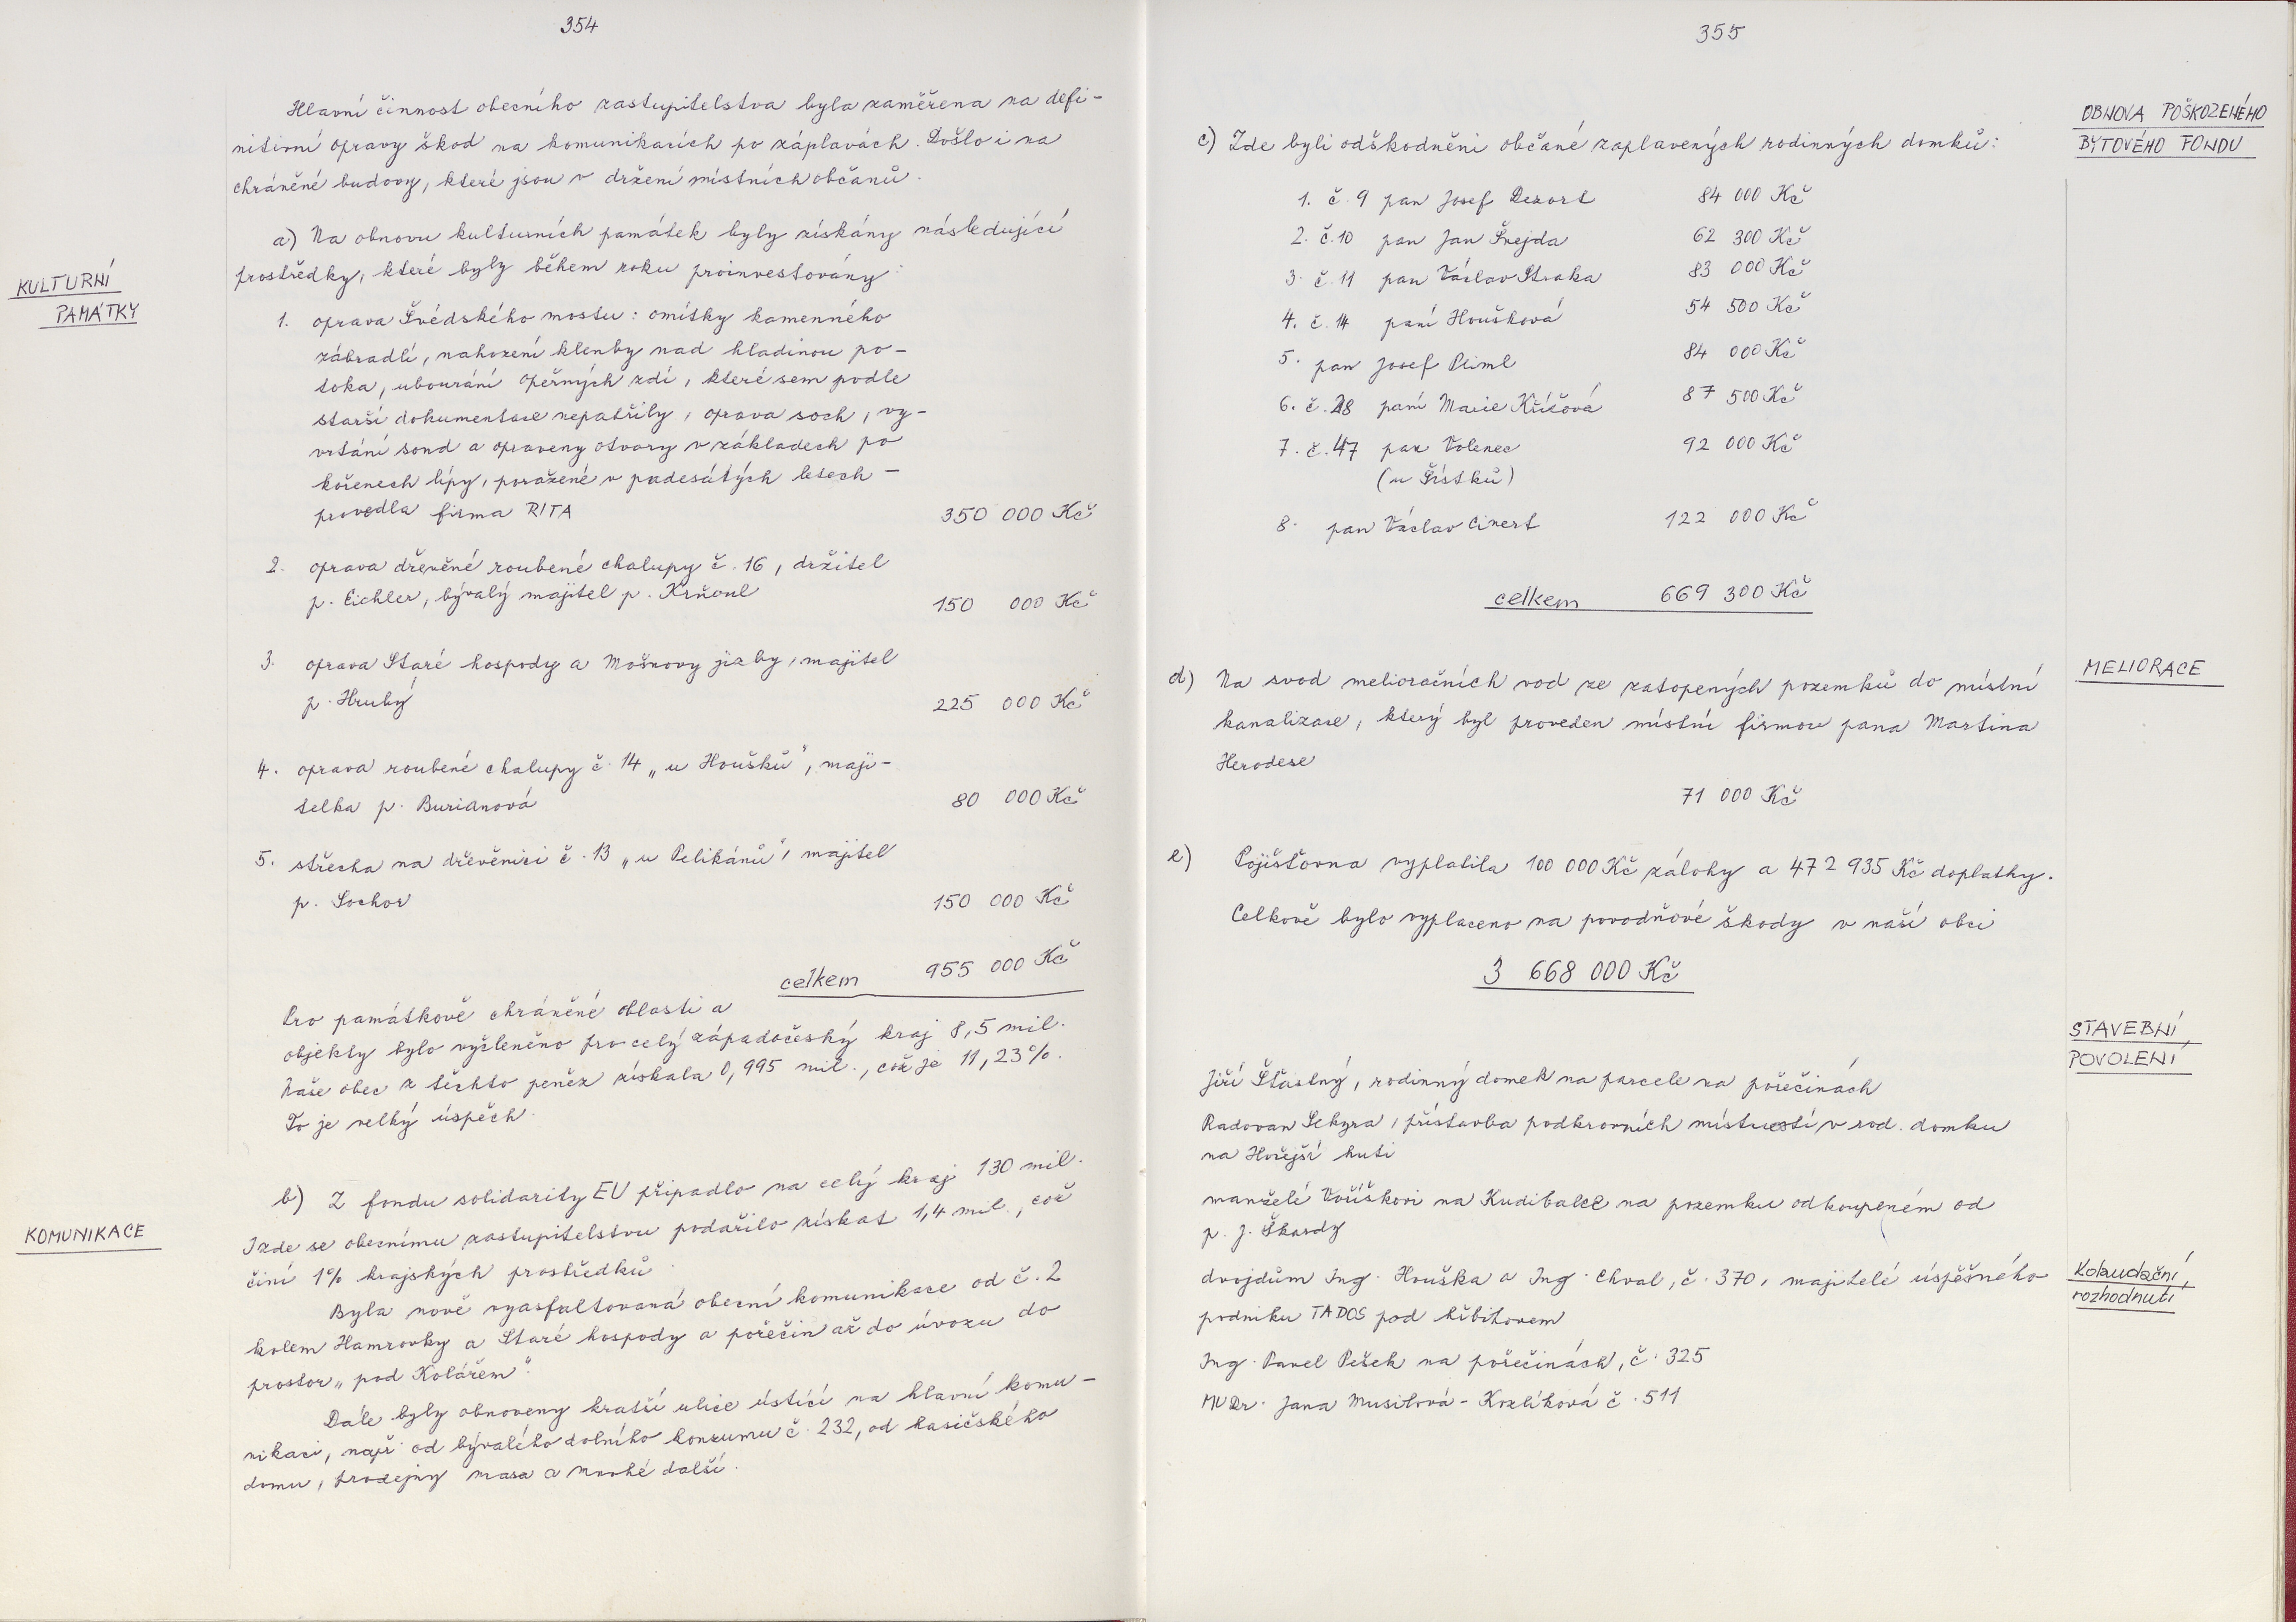 354
Hlavní činnost obecního zastupitelstva byla zaměřena na defi-
nitivní opravy škod na komunikacích po záplavách. Došlo i na
chráněné budovy, které jsou v držení místních občanů.
KULTURNÍ
PAMÁTKY
a) Na obnovu kulturních památek byly získány následující
prostředky, které byly během roku proinvestovány:
1. oprava Švédského mostu: omítky kamenného
zábradlí, nahození klenby nad hladinou po-
toka, ubourání opěrných zdí, které sem podle
starší dokumentace nepatřily, oprava soch, vy-
vrtání sond a opraveny otvory v základech po
kořenech lípy, poražené v padesátých letech -
provedla firma RITA 350 000 Kč
2. oprava dřevěné roubené chalupy č. 16, držitel
p. Eichler, bývalý majitel p. Krňoul 150 000 Kč
3. oprava Staré hospody a Mošnovy jizby, majitel
p. Hrubý 225 000 Kč
4. oprava roubené chalupy č. 14 „u Houšků", maji-
telka p. Burianová 80 000 Kč
5. střecha na dřevěnici č. 13 „u Pelikánů", majitel
p. Sochor 150 000 Kč
celkem 955 000 Kč
Pro památkově chráněné oblasti a
objekty bylo vyčleněno pro celý západočeský kraj 8,5 mil.
Naše obec z těchto peněz získala 0,995 mil., což je 11,23%.
To je velký úspěch.
KOMUNIKACE
b) Z fondu solidarity EU připadlo na celý kraj 130 mil.
I zde se obecnímu zastupitelstvu podařilo získat 1,4 mil., což
činí 1% krajských prostředků.
Byla nově vyasfaltovaná obecní komunikace od č. 2
kolem Hamrovky a Staré hospody a pořečin až do úvozu do
prostor „pod Kolářem".
Dále byly obnoveny kratší ulice ústící na hlavní komu-
nikaci, např. od bývalého dolního konzumu č. 232, od hasičského
domu, prodejny masa a mnohé další.
355
OBNOVA POŠKOZENÉHO
BYTOVÉHO FONDU
c) Zde byli odškodněni občané zaplavených rodinných domků:
1. č. 9 pan Josef Dezort 84 000 Kč
2. č. 10 pan Jan Švejda 62 300 Kč
3. č. 11 pan Václav Straka 83 000 Kč
4. č. 14 paní Houšková 54 500 Kč
5. pan Josef Pliml 84 000 Kč
6. č. 28 paní Marie Křížová 87 500 Kč
7. č. 47 pan Volenec 92 000 Kč
(u Šístků)
8. pan Václav Cinert 122 000 Kč
celkem 669 300 Kč
MELIORACE
d) Na svod melioračních vod ze zatopených pozemků do místní
kanalizace, který byl proveden místní firmou pana Martina
Herodese
71 000 Kč
e) Pojišťovna vyplatila 100 000 Kč zálohy a 472 935 Kč doplatky.
Celkově bylo vyplaceno na povodňové škody v naší obci
3 668 000 Kč
STAVEBNÍ
POVOLENÍ
Jiří Šťastný, rodinný domek na parcele na pořečinách
Radovan Sekyra, přístavba podkrovních místností v rod. domku
na Hořejší huti
manželé Voříškovi na Kudibalce na pozemku odkoupeném od
p. J. Škardy
Kolaudační
rozhodnutí
dvojdům Ing. Houška a Ing. Chval, č. 370, majitelé úspěšného
podniku TADOS pod hřbitovem
Ing. Pavel Pešek na pořečinách, č. 325
MUDr. Jana Musilová - Kozlíková č. 511